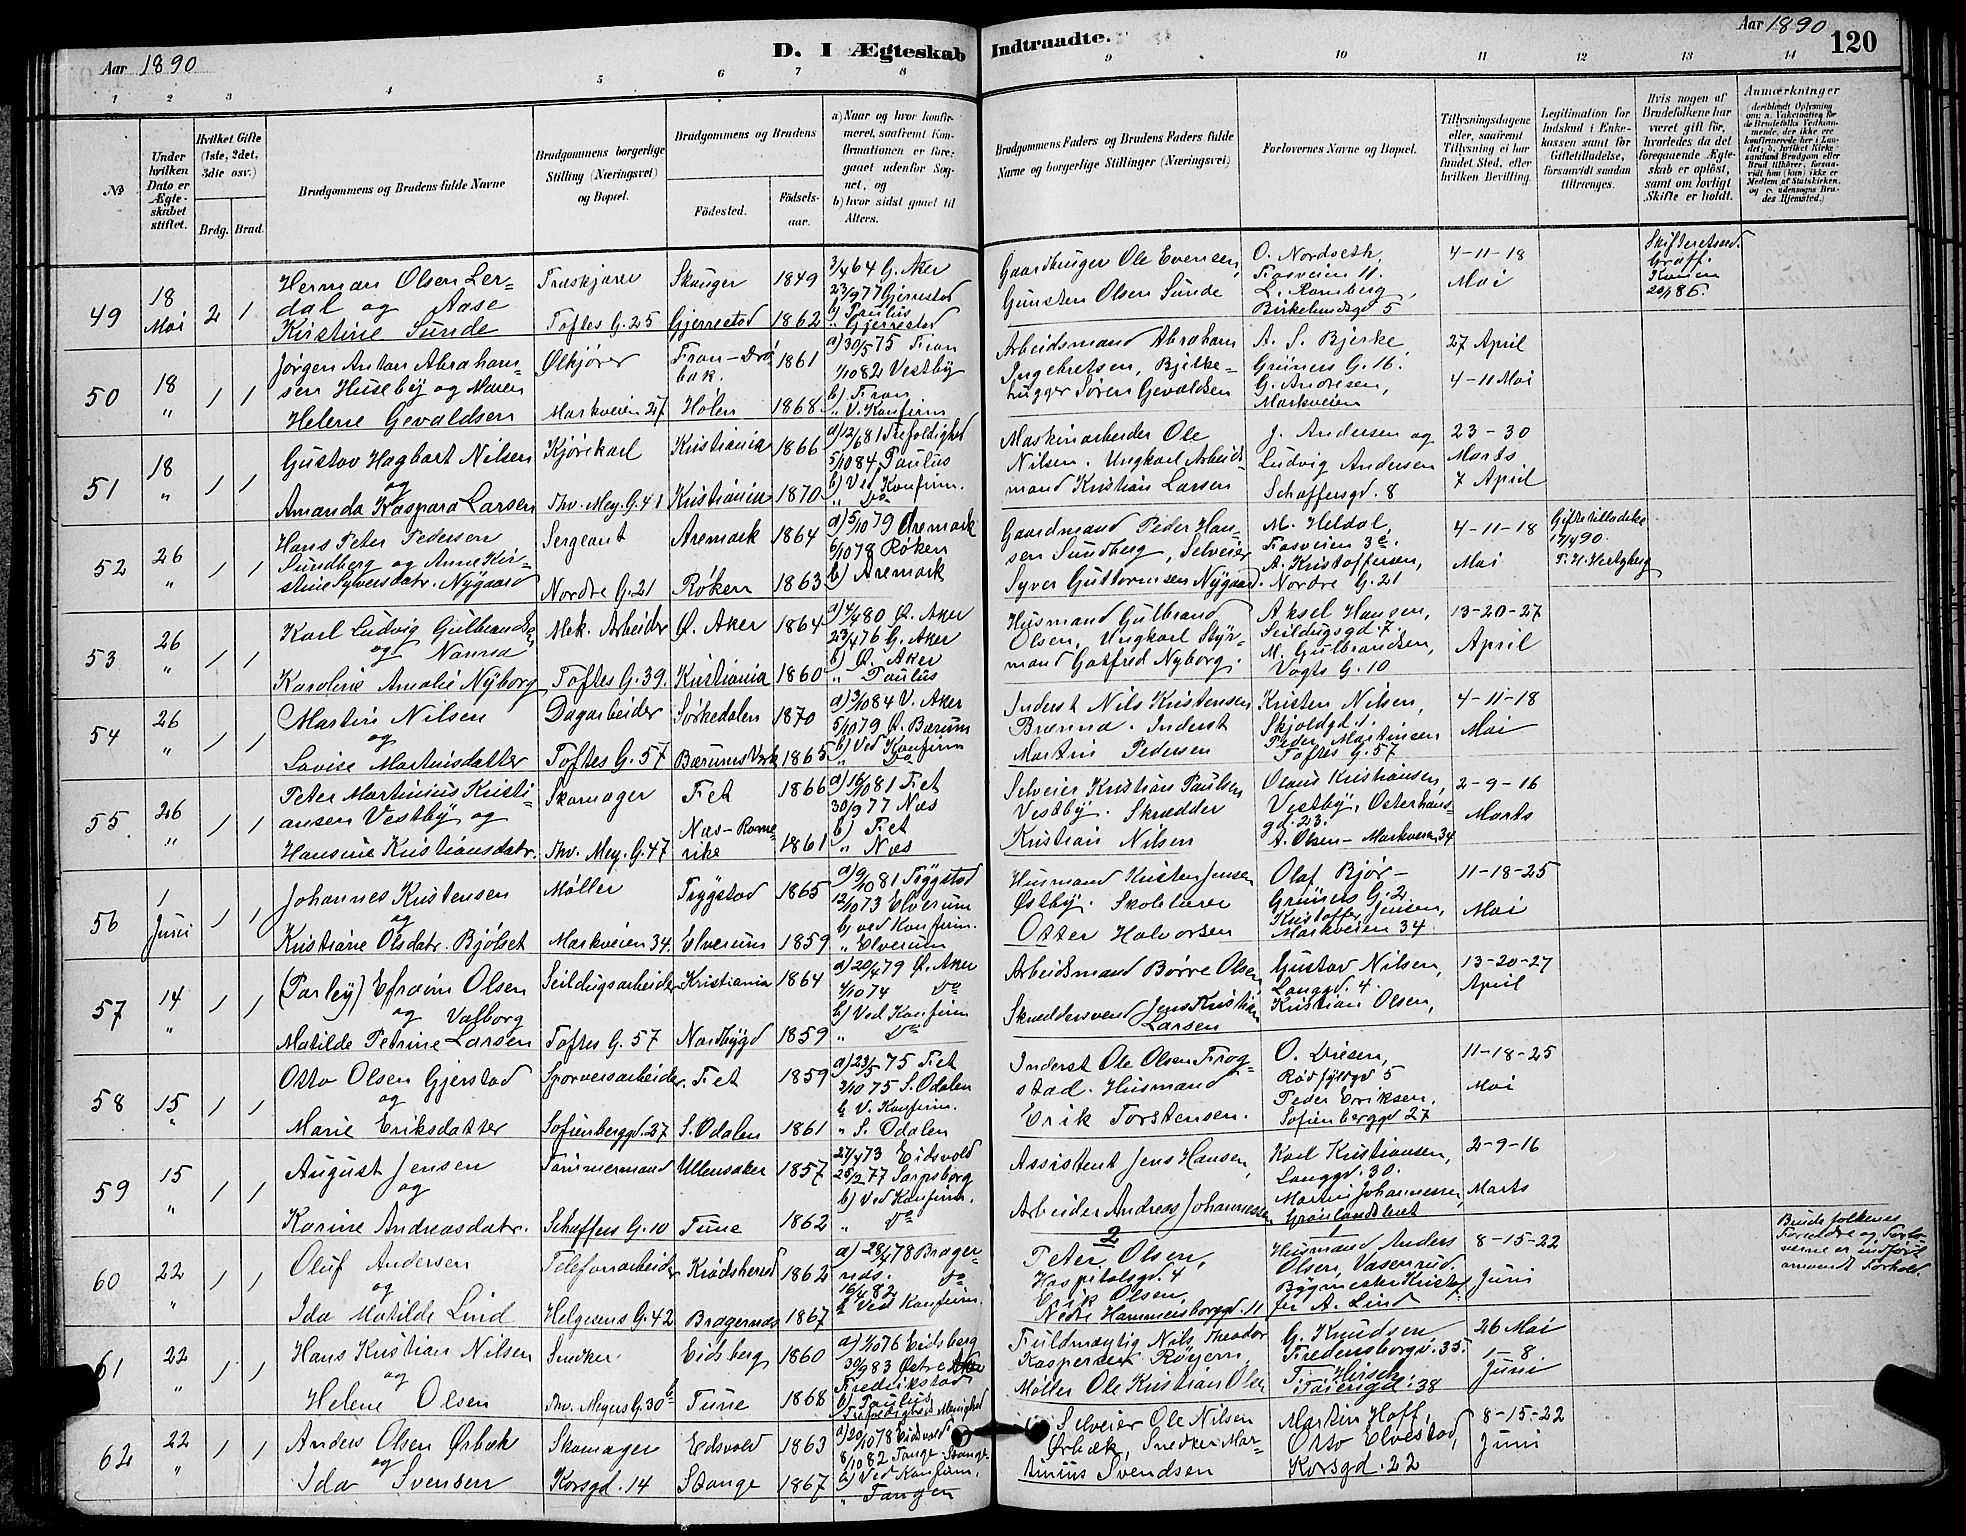 Aar 1890
D. I Ægteskab Indtraadte.
Aar 1890
120
1 2 3 4 5 6 7 8 9 10 11 12 13 14
No
Under hvilken Dato er Ægteskabet stiftet.
Hvilket Gifte (1ste, 2det, 3die osv.)
Brdg. Brud.
Brudgommens og Brudens fulde Navne
Brudgommens borgerlige Stilling (Næringsvei) og Bopæl.
Brudgommens og Brudens
Födested. Födselsaar.
a) Naar og hvor konfirmeret, saafremt Konfirmationen er foregaaet udenfor Sognet, og
b) hvor sidst gaaet til Alters.
Brudgommens Faders og Brudens Faders fulde Navne og borgerlige Stillinger (Næringsvei)
Forlovernes Navne og Bopæl.
Tillysningsdagene eller, saafremt Tillysning ei har fundet Sted, efter hvilken Bevilling.
Legitimation for Indskud i Enkekassen samt for Giftetilladelse, forsaavidt saadan tiltrænges.
Hvis nogen af Brudefolkene har været gift för, hvorledes da det foregaaende Ægteskab er oplöst, samt om lovligt Skifte er holdt.
Anmærkninger
49 18 Mai 2 1
Herman Olsen Lerdal og Aase Kirstine Sunde
Toftes G. 25
Skauger 1849
Gjerrestad 1862
3/4 64 G. Aker
23/9 77 Gjerrestad
b) Paulus
" Gjerrestad
Gaardbruger Ole Evensen,
Gunsten Olsen Sunde
O. Nordseth,
Fosveien 11.
L. Romberg,
Birkelundsgd 5
4-11-18 Mai
Skifteretsud. Graff.
50 18 " 1 1
Jørgen Anton Abrahamsen Huseby og Maren Helene Gevaldsen
Ølkjører
Markveien 27
Fron-Drøbak. 1861
Hølen 1868
a) 30/5 75 Fron
1/10 82 Vestby
b) Fron
" V. Konfirm
Arbeidsmand Abraham Ingebretsen, Bjelkehugger Søren Gevaldsen
A. S. Bjerke,
Grüners G. 16.
G. Andresen,
Markveien
27 April
4-11 Mai
51 18 " 1 1
Gustav Hagbart Nilsen
og
Amanda Kaspara Larsen
Kjørekarl
Thv. Mey. G. 41
Kristiania 1866
Kristiania 1870
a) 12/6 81 Trefoldighed
5/10 84 Paulus
b) Ved Konfirm.
" Do
Maskinarbeider Ole Nilsen. Ungkarl Arbeidsmand Kristian Larsen
J. Andersen og
Ludvig Andersen
Schaffersgd. 8
23-30 Marts
7 April
52 26 " 1 1
Hans Peter Pedersen Sundberg og Anne Kirstine Syversdatr. Nygaard
Sergeant
Nordre G. 21
Aremark 1864
Røken 1863
a) 5/10 79 Aremark
6/10 78 Røken
b) Aremark
Gaardmand Peder Hansen Sundberg, Selveier Syver Guttormsen Nygaard.
M. Heldal,
Fosveien 3e.
A. Kristoffersen,
Nordre G. 21
4-11-18 Mai
Giftetilladelse 17/4 90.
F. H. Hertzberg
53 26 " 1 1
Karl Ludvig Gulbrandsen
og Nanna
Karoline Amalie Nyborg
Mek. Arbeider
Toftes G. 39.
Ø. Aker 1864
Kristiania 1860
a) 4/4 80 Ø. Aker
23/4 76 G. Aker
b) Ø. Aker
" Paulus
Husmand Gulbrand Olsen, Ungkarl Styrmand Gotfred Nyborg.
Aksel Hansen,
Seildugsgd. 7.
M. Gulbrandsen,
Vogts G. 10
13-20-27 April
54 26 " 1 1
Martin Nilsen
og
Lovise Martinsdatter
Dagarbeider
Toftes G. 57
Sørkedalen 1870
Bærums Verk 1865
a) 3/10 84 V. Aker
5/10 79 Ø. Bærum
b) Ved Konfirm
" Do
Inderst Nils Kristensen Brenna. Inderst Martin Pedersen
Kristen Nilsen,
Skjoldgd. 1.
Peder Martinsen
Toftes G. 57
4-11-18 Mai
55. 26 " 1 1
Peter Martinius Kristiansen Vestby og
Hansine Kristiansdatr.
Skomager
Thv. Mey. G. 47
Fet 1866
Næs-Romerike 1861
a) 16/10 81 Fet
30/9 77 Næs
b) Fet
" Næs
Selveier Kristian Paulsen Vestby. Skrædder Kristian Nilsen
Olaus Kristiansen,
Vestby, Osterhausgd. 23.
A. Olsen - Markveien 34
2-9-16 Marts
56 1 Juni 1 1
Johannes Kristensen
og
Kristiane Olsdatr. Bjølset
Møller
Markveien 34.
Trygstad 1865
Elverum 1859
a) 9/10 81 Trygstad
12/10 73 Elverum
b) ved Konfirm.
" Elverum
Husmand Kristen Jensen Østby. Skolelærer Otter Halvorsen
Olaf Bjør-
Grüners G. 2
Kristoffer Jensen,
Markveien 34
11-18-25 Mai
57 14 " 1 1
(Parley) Efraim Olsen
og Valborg
Matilde Petrine Larsen
Seildugsarbeider
Toftes G. 57
Kristiania 1864
Nordbygd 1859
a) 20/4 79 Ø. Aker
4/10 74 Do
b) Ved Konfirm
" Do
Arbeidsmand Børre Olsen
Skræddersvend Jens Kristian Larsen
Gustav Nilsen,
Langgd. 4.
Kristian Olsen,
13-20-27 April
58 15 " 1 1
Otto Olsen Gjerstad
og
Marie Eriksdatter
Sporveisarbeider.
Sofienberggd. 27
Fet 1859
S. Odalen 1861
a) 23/5 75 Fet
3/10 75 S. Odalen
b V. Konfirm.
" S. Odalen
Inderst Ole Olsen Frogstad. Husmand Erik Torstensen.
O. Diesen,
Rødfyldgd 5
Peder Eriksen.
Sofienberggd 27
11-18-25 Mai
59 15 " 1 1
August Jensen
og
Karine Andreasdatr.
Tømmermand
Schaffers G. 10
Ullensaker 1857
Tune 1862
27/4 73 Eidsvold
25/2 77 Sarpsborg
b) Ved Konfirm.
" Do
Assistent Jens Hansen,
Arbeider Andreas Johannessen
Karl Kristiansen,
Langgd. 30.
Martin Johannessen,
Grønlandsleret
2-9-16 Marts
60 22 " 1 1
Oluf Andersen
og
Ida Matilde Lind
Telefonarbeider
Helgesens G. 42
Krødsherred 1862
Bragernæs 1867
a) 28/4 78 Bragernæs.
16/4 82 Do
b Ved Konfirm.
2
Peter Olsen,
Hospitalsgd. 4
Erik Olsen
Nedre Hammersborggd. 11
Husmand Anders Olsen, Vasenrud.
Bygmester Kristoffer A. Lind
8-15-22 Juni
Brudefolkenes Foreldre og Forloverne er indført omvendt Forhold.
61 22 " 1 1
Hans Kristian Nilsen
og
Helene Olsen
Snedker
Thv. Meyers G. 30 b
Eidsberg 1860
Tune 1868
a) 1/10 76 Eidsberg
30/9 83 Østre Fredrikstad
b) Paulus
" Trefoldigheds Menighed
Fuldmægtig Nils Theodor Kaspersen Røyem.
Møller Ole Kristian Olsen
G. Knudsen,
Fredensborgvd. 35.
T. Hirsch
26 Mai
1-8 Juni
62 22 " 1 1
Anders Olsen Ørbæk
og
Ida Svensen
Skomager
Korsgd. 14
Edsvold 1863
Stange 1867
a) 20/10 78 Eidsvold
8/10 82 Tange-Stange
b) Ved Konfirm.
" Tangen
Selveier Ole Nilsen Ørbæk, Snedker Martinius Svendsen
Martin Hoff,
Otto Elvestad,
Korsgd. 22
8-15-22 Juni